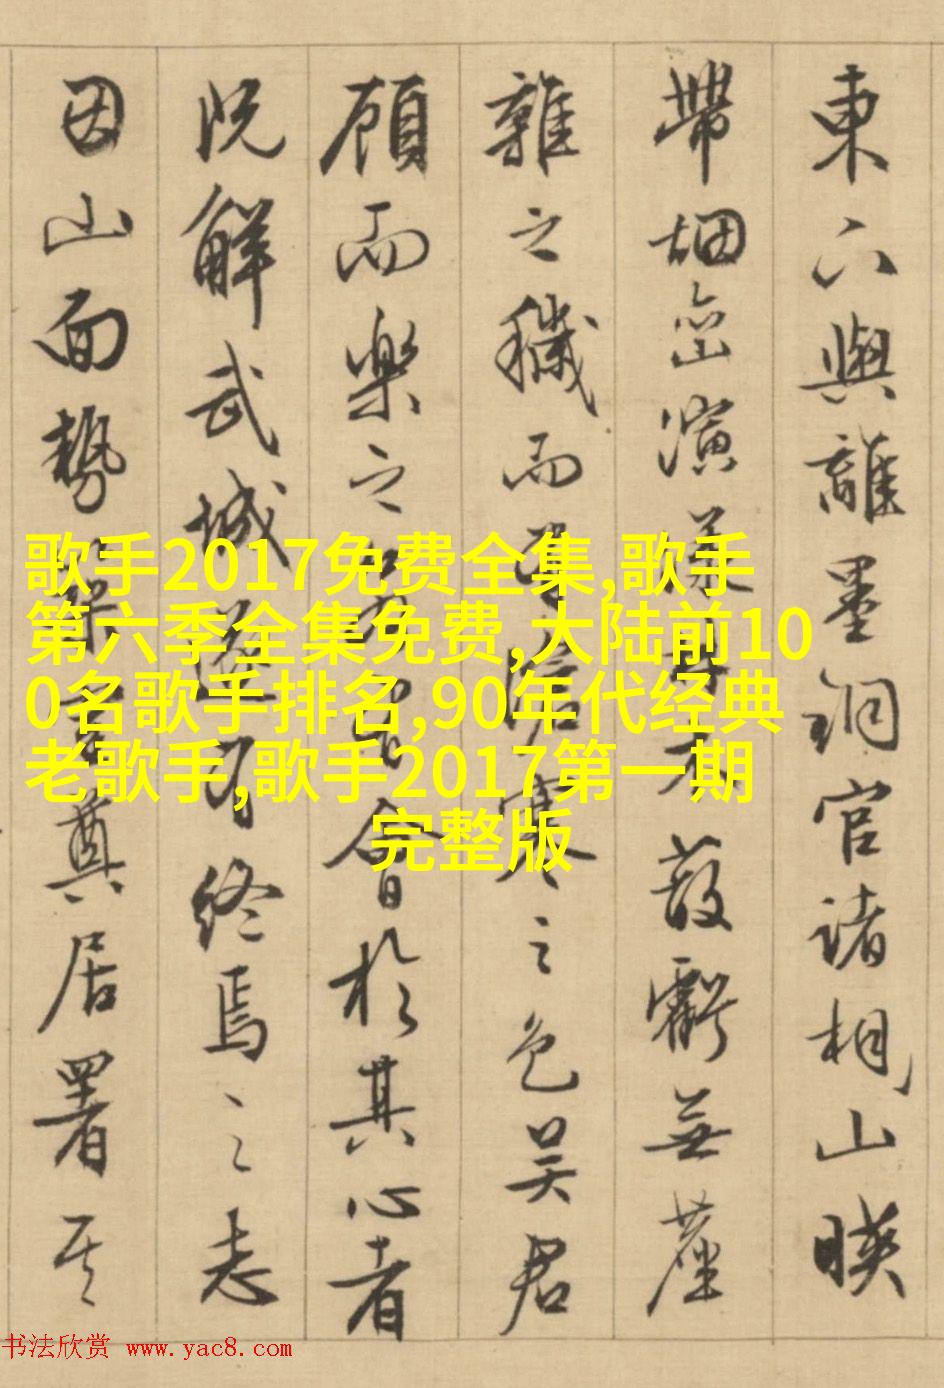 東六與離墨銅官諸相山暎
帶烟峦演漾不蔽虧無塵
雜之穢而寒之色吴君
顧而樂之會於其心者
既解武城遂有終焉之志
因山面勢築奠居署其
歌手2017免费全集,歌手
第六季全集免费,大陆前10
0名歌手排名,90年代经典
老歌手,歌手2017第一期
完整版
书法欣赏 www.yac8.com